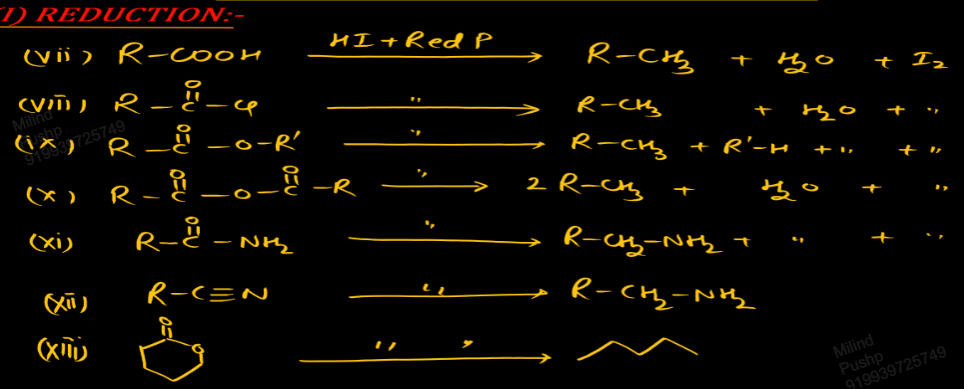 (I) REDUCTION:-
(vii) R-COOH HI + Red P → R-CH3 + H2O + I2
(viii) R-C(=O)-Cl " → R-CH3 + H2O + "
(ix) R-C(=O)-O-R' " → R-CH3 + R'-H + " + "
(x) R-C(=O)-O-C(=O)-R " → 2 R-CH3 + H2O + "
(xi) R-C(=O)-NH2 " → R-CH2-NH2 + " + "
(xii) R-C≡N " → R-CH2-NH2
(xiii) O O " " →
Milind
Pushp
919939725749
Milind
Pushp
919939725749